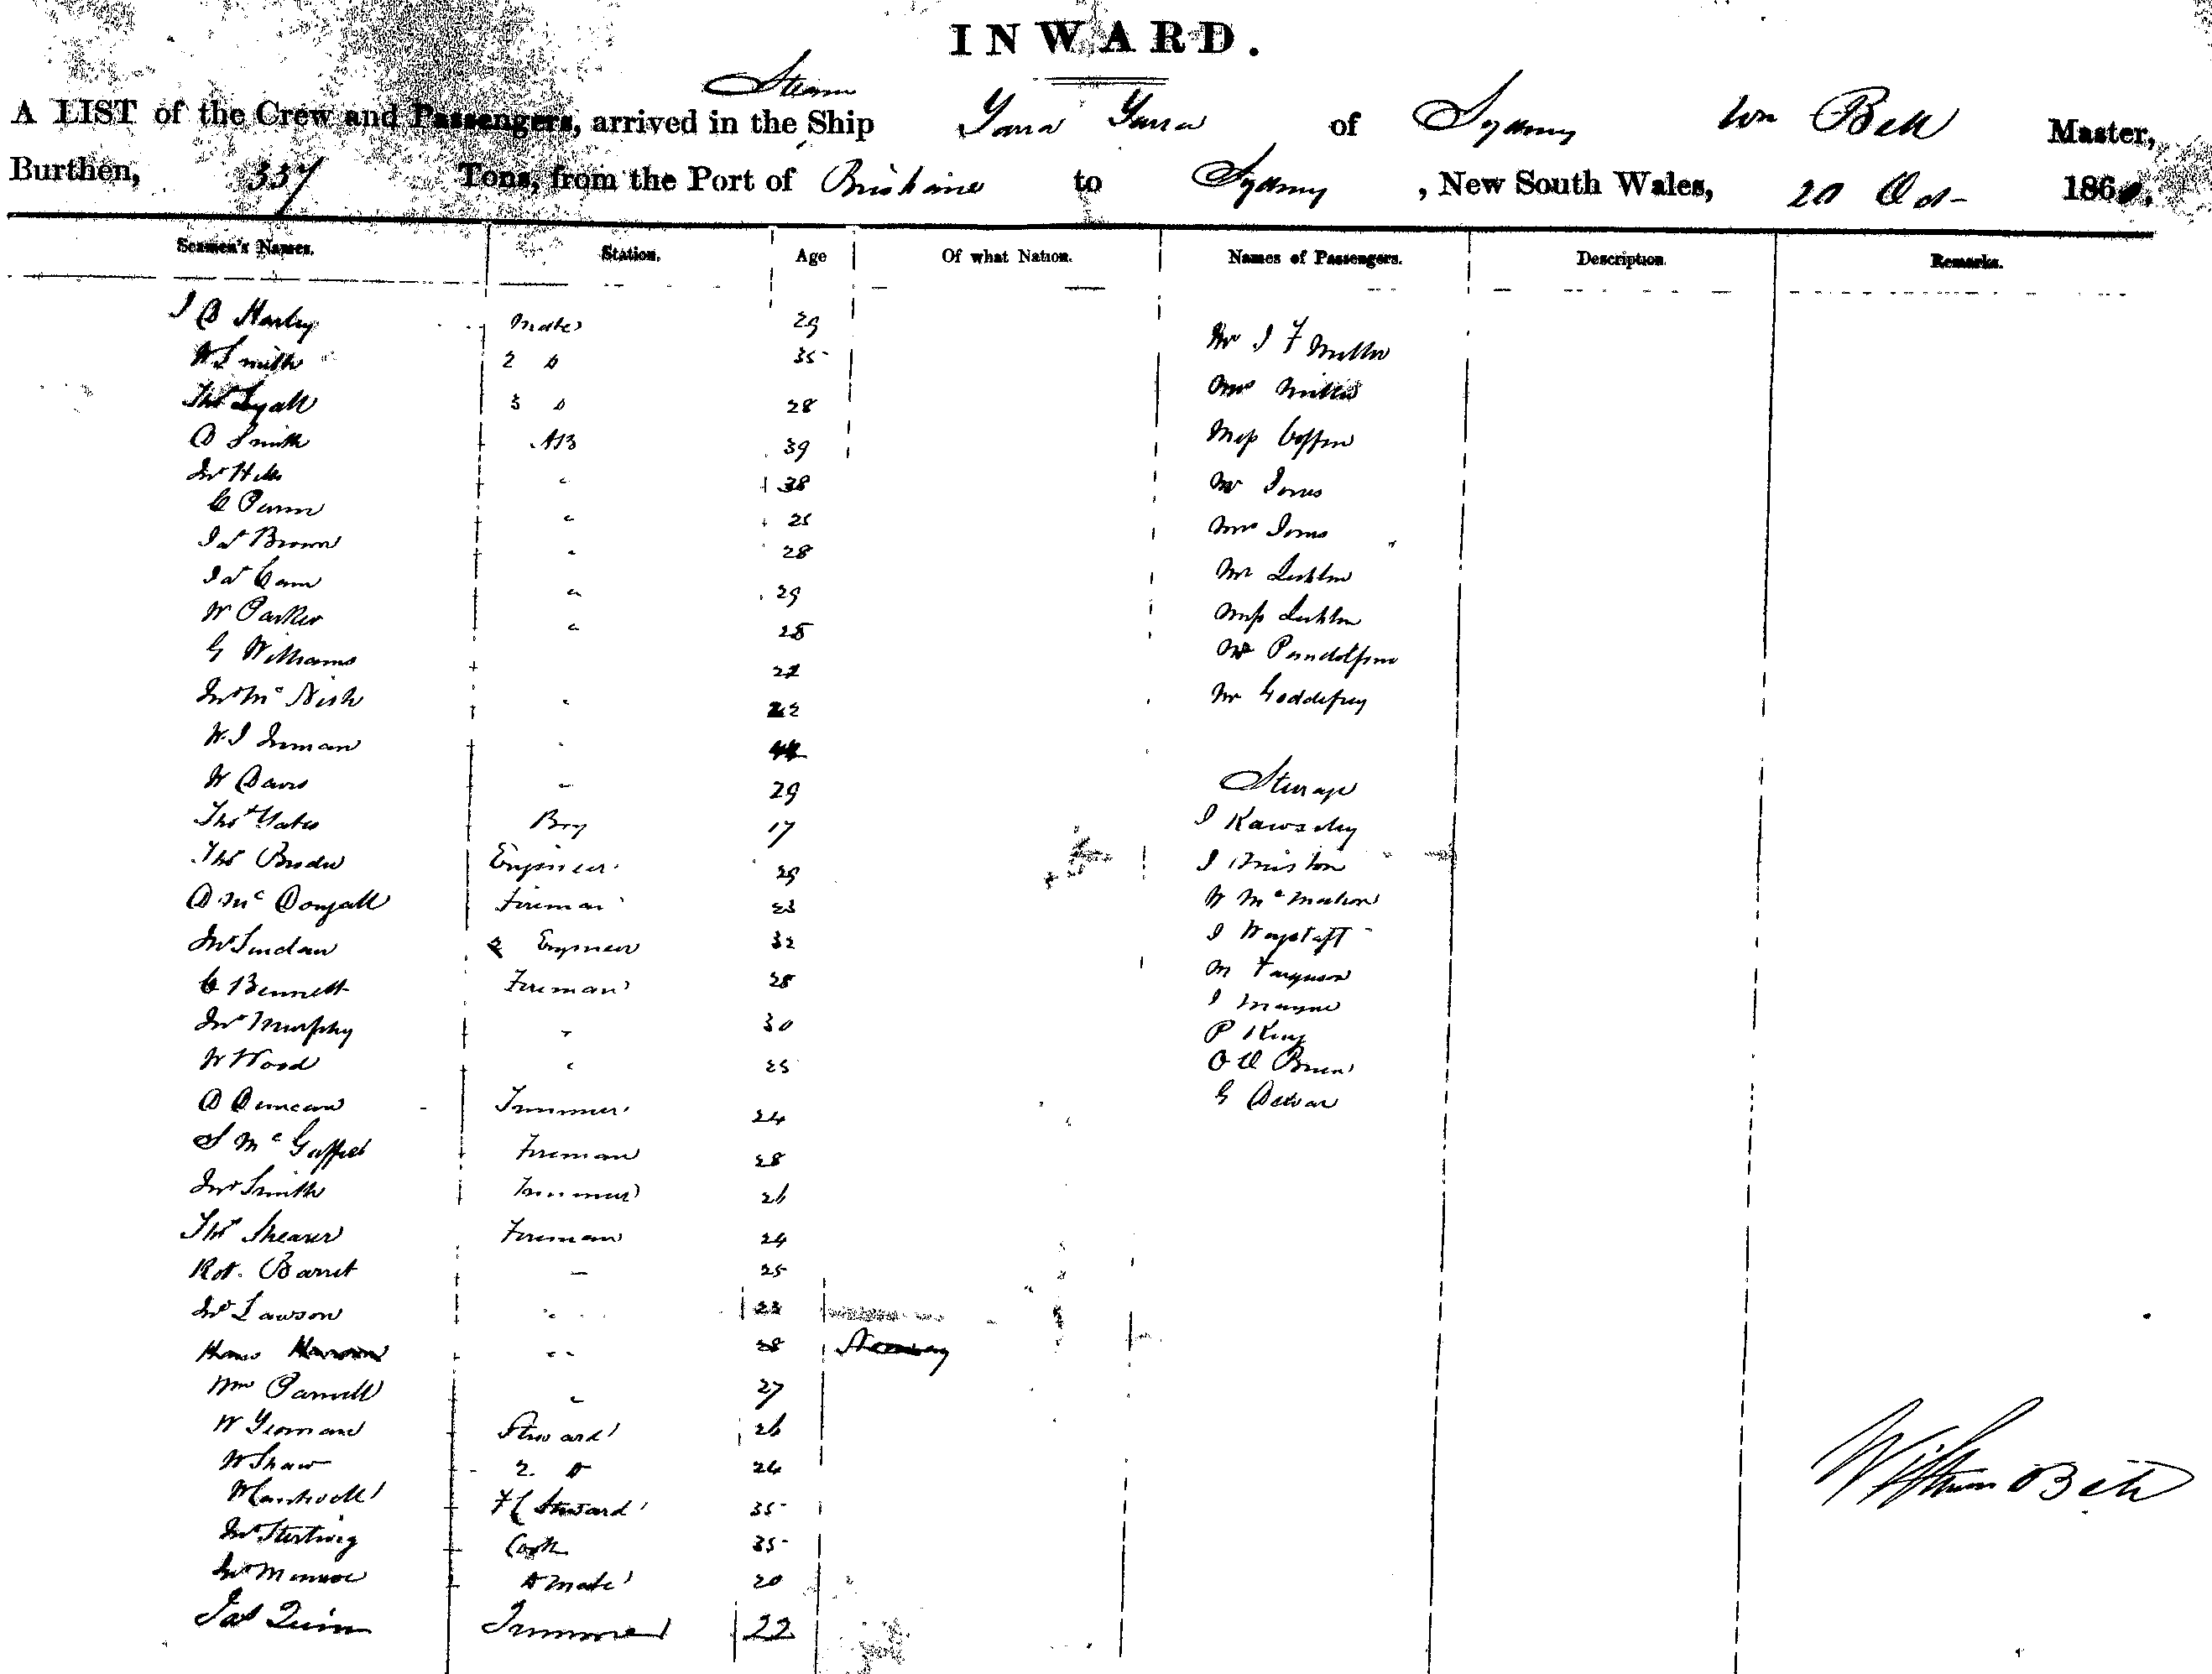 INWARD.
Steam
A LIST of the Crew and Passengers, arrived in the Ship Yarra Yarra of Sydney Wm Bell Master,
Burthen, 337 Tons, from the Port of Brisbane to Sydney, New South Wales, 20 Oct 1860.
Seamen's Names. Station. Age Of what Nation. Names of Passengers. Description. Remarks.
J D Harley Mate 29
W Smith 2 D 35 Mr J F Miller
Thos Lyall 3 D 28 Mrs Miller
D Smith AB 39 Miss Coffin
Jno " 38 Mr Jones
C " 25 Mrs Jones
Jas Brown " 28
Jas Cam " 29 Mr
W Parker " 28 Miss
G Williams 22 Mr Pandolfino
Jno McNish " 22 Mr Goddefrey
W J Inman "
W Davis " 29 Steerage
Thos Yates Boy 17 J
Thos Brodie Engineer 29 J
D McDougall Fireman 23 W McMahon
Jno Sinclair 2 Engineer 32 J Wagstaff
C Bennett Fireman 28 M Ferguson
Jno Murphy " 30 J Mayne
W Wood " 25 P King
D Duncan Trimmer 24 O O Brien
S McGuffie Fireman 28 G Dewar
Jno Smith Trimmer 26
Thos Shearer Fireman 24
Rot. Barret " 25
Jno Lawson " 23
Hans 28 Norway
Wm Parnell " 27
W Yeoman Steward 26
W Shaw 2 D 24
F C Steward 35
Jno Sterling Cook 35
Jno Munroe D Mate 20
Jas Quinn Trimmer 22
William Bell